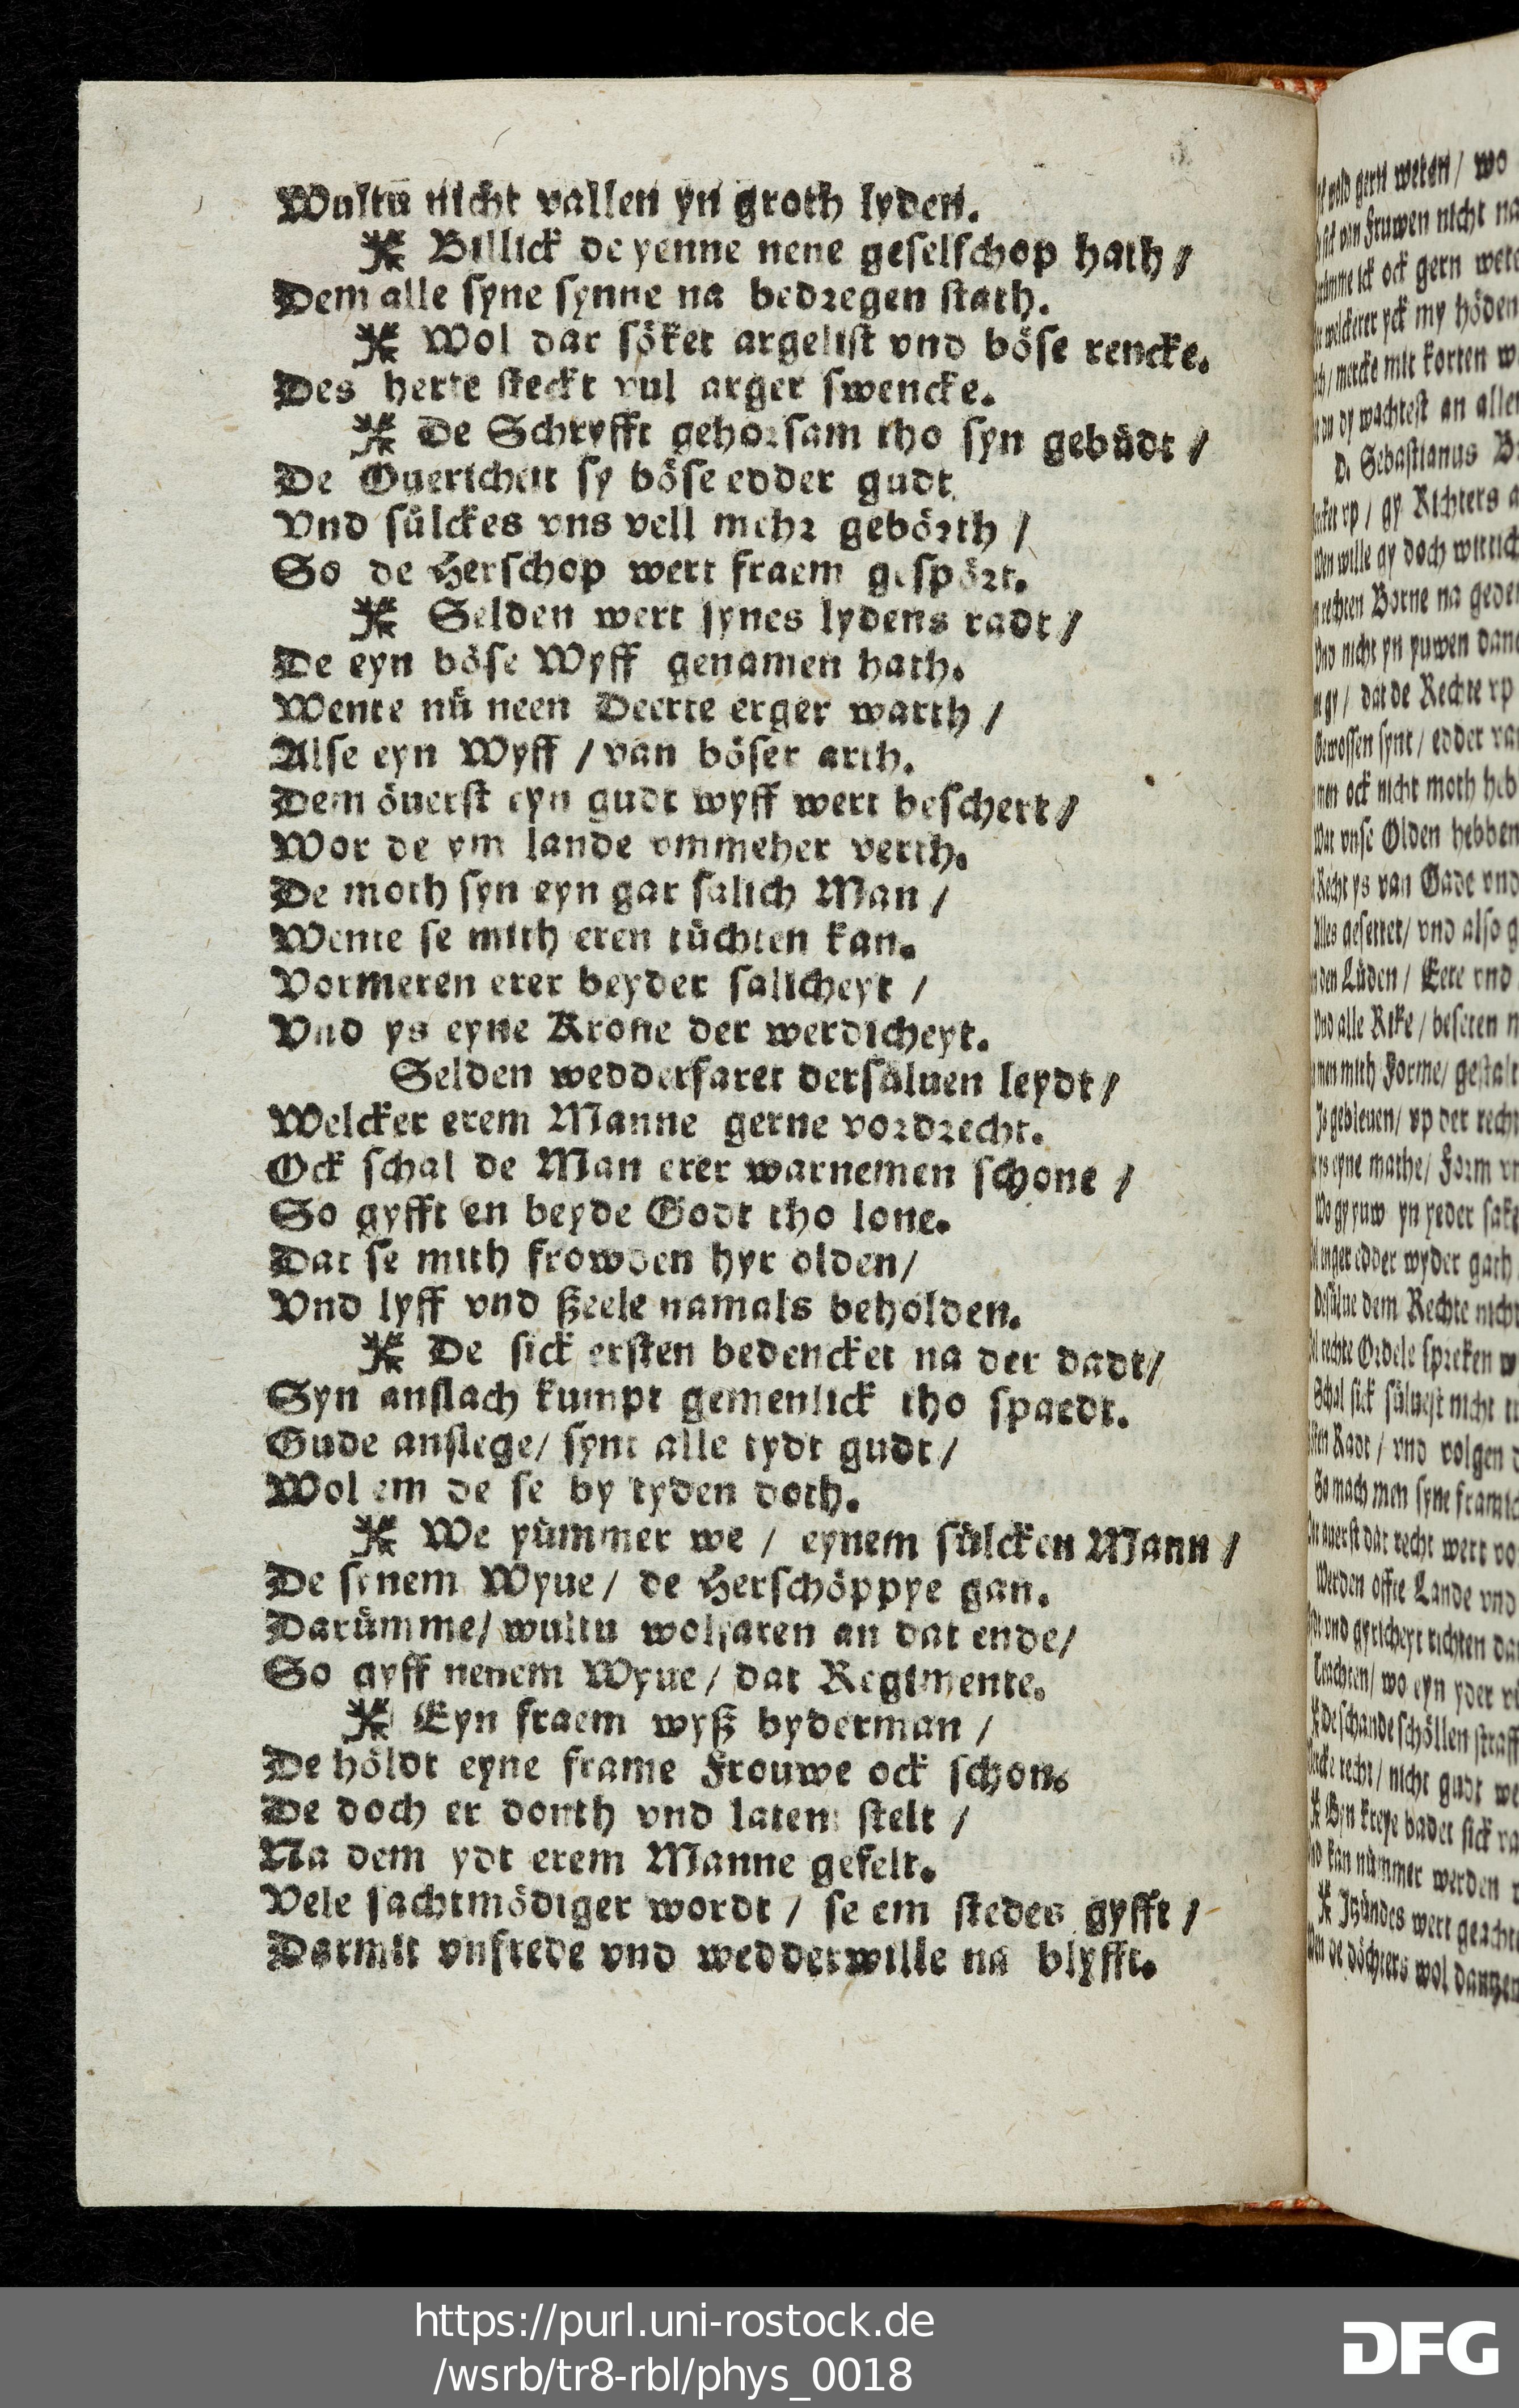 Wultu nicht vallen yn groth lyden.
Billick de yenne nene geselschop hath /
Dem alle syne synne na bedregen stath.
Wol dar söket argelist vnd böse rencke.
Des herte steckt vul arger swencke.
De Schryfft gehorsam tho syn gebüdt /
De Ouericheit sy böse edder gudt
Vnd sülckes vns vell mehr gebörth /
So de Herschop wert fraem gespört.
Selden wert synes lydens radt /
De eyn böse Wyff genamen hath.
Wente nü neen Deerte erger warth /
Alse eyn Wyff / van böser arth.
Dem öuerst eyn gudt wyff wert beschert /
Wor de ym lande vmmeher verth.
De moth syn eyn gar salich Man /
Wente se mith eren tüchten kan.
Vormeren erer beyder salicheyt /
Vnd ys eyne Krone der werdicheyt.
Selden wedderfaret dersüluen leydt /
Welcker erem Manne gerne vordrecht.
Ock schal de Man erer warnemen schone /
So gyfft en beyde Godt tho lone.
Dat se mith frowden hyr olden /
Vnd lyff vnd ßeele namals beholden.
De sick ersten bedencket na der dadt /
Syn anslach kumpt gemenlick tho spaedt.
Gude anslege / synt alle tydt gudt /
Wol em de se by tyden doth.
We yümmer we / eynem sülcken Mann /
De synem Wyue / de Herschöppye gan.
Darümme / wultu wolfaren an dat ende /
So gyff nenem Wyue / dat Regimente.
Eyn fraem wyß byderman /
De höldt eyne frame Frouwe ock schon.
De doch er donth vnd laten stelt /
Na dem ydt erem Manne gefelt.
Vele sachtmödiger wordt / se em stedes gyfft /
Darmit vnfrede vnd wedderwille na blyfft.
https://purl.uni-rostock.de
/wsrb/tr8-rbl/phys_0018
DFG